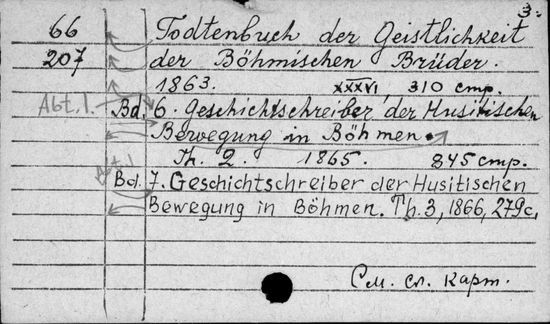 3.
66 Todtenbuch der Geistlichkeit
207 der Böhmischen Brüder.
1863. XXXVI, 310 стр.
Abt. 1. Bd. 6. Geschichtschreiber der Husitischen
Bewegung in Böhmen.
Th. 2. 1865. 845 стр.
Abt. 1 Bd. 7. Geschichtschreiber der Husitischen
Bewegung in Böhmen. Th. 3, 1866, 279 с.
См. сл. карт.